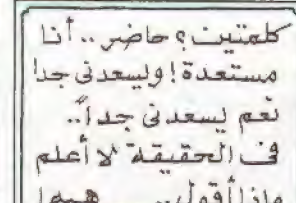 كلمتين؟ حاضر.. أنا
مستعدة! ويسعدنى جدا
نعم يسعدنى جداً..
فى الحقيقة لا أعلم
ماذا أقول..